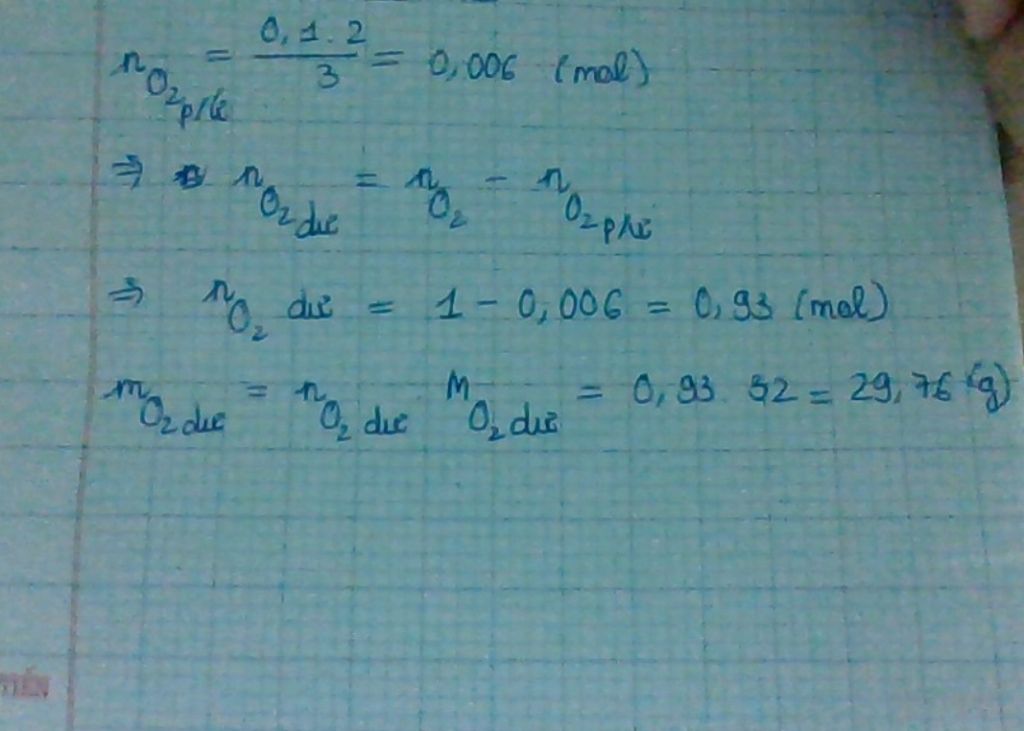 n_{O_2 p/ứ} = \frac{0,1 . 2}{3} = 0,006 (mol)
⇒ n_{O_2 dư} = n_{O_2} - n_{O_2 p/ứ}
⇒ n_{O_2} dư = 1 - 0,006 = 0,93 (mol)
m_{O_2 dư} = n_{O_2 dư} . M_{O_2 dư} = 0,93 . 32 = 29,76 (g)